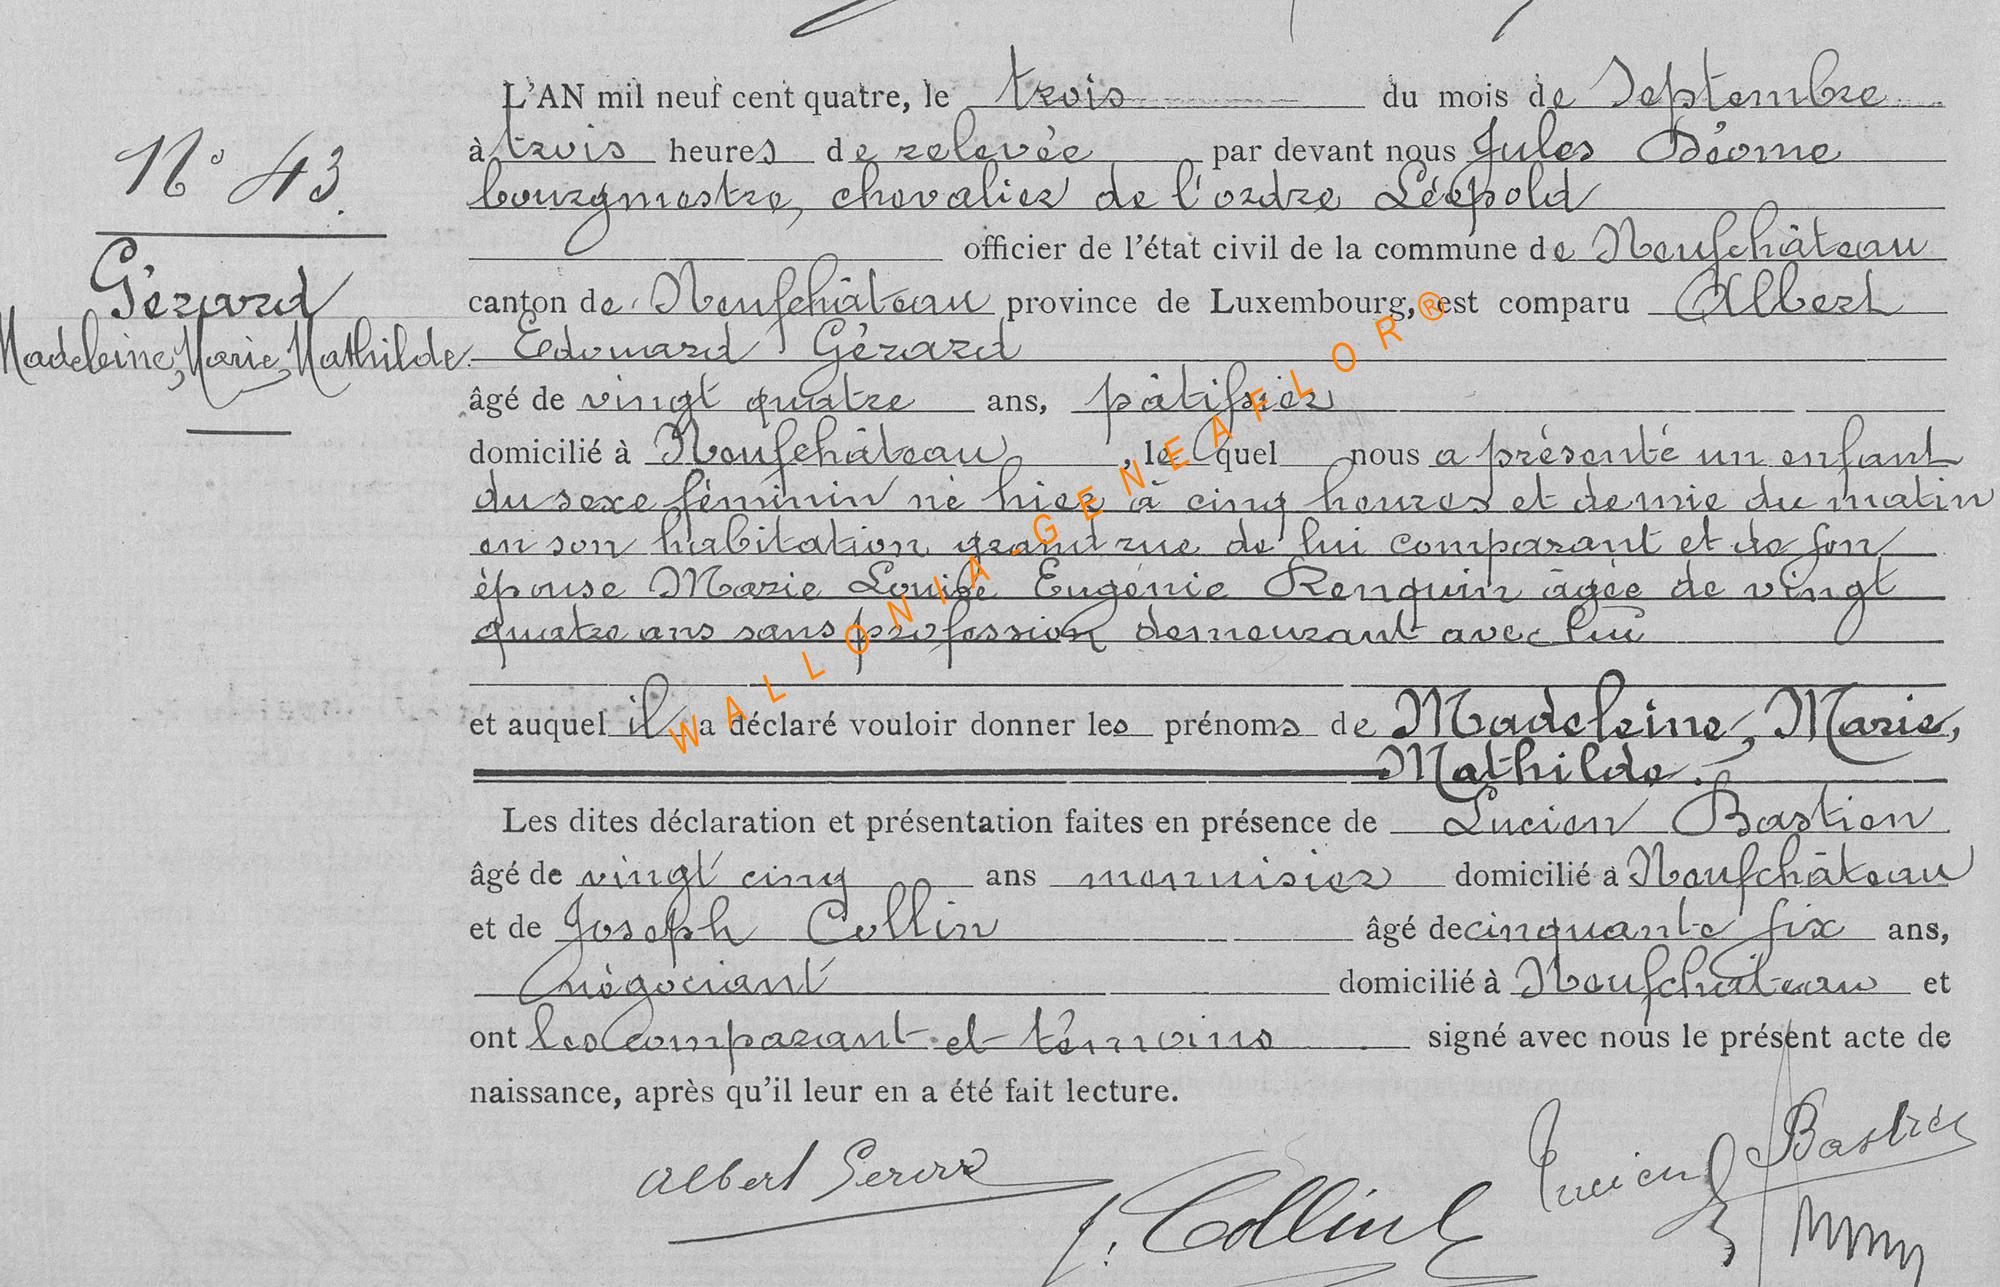 N° 43.
Gérard
Madeleine, Marie, Mathilde.
L'AN mil neuf cent quatre, le trois du mois de Septembre
à trois heures de relevée par devant nous Jules Déome
bourgmestre, chevalier de l'ordre Léopold
officier de l'état civil de la commune de Neufchâteau
canton de Neufchâteau province de Luxembourg, est comparu Albert
Edouard Gérard
âgé de vingt quatre ans, pâtissier
domicilié à Neufchâteau, lequel nous a présenté un enfant
du sexe féminin né hier à cinq heures et demie du matin
en son habitation grand rue de lui comparant et de son
épouse Marie Louise Eugénie Renquin âgée de vingt
quatre ans sans profession demeurant avec lui
et auquel il a déclaré vouloir donner les prénoms de Madeleine, Marie,
Mathilde.
Les dites déclaration et présentation faites en présence de Lucien Bastien
âgé de vingt cinq ans menuisier domicilié à Neufchâteau
et de Joseph Collin âgé de cinquante six ans,
négociant domicilié à Neufchâteau et
ont les comparant et témoins signé avec nous le présent acte de
naissance, après qu'il leur en a été fait lecture.
Albert Gerard
J. Collin
Lucien Bastien
WALLONIA-GENEAFLOR®